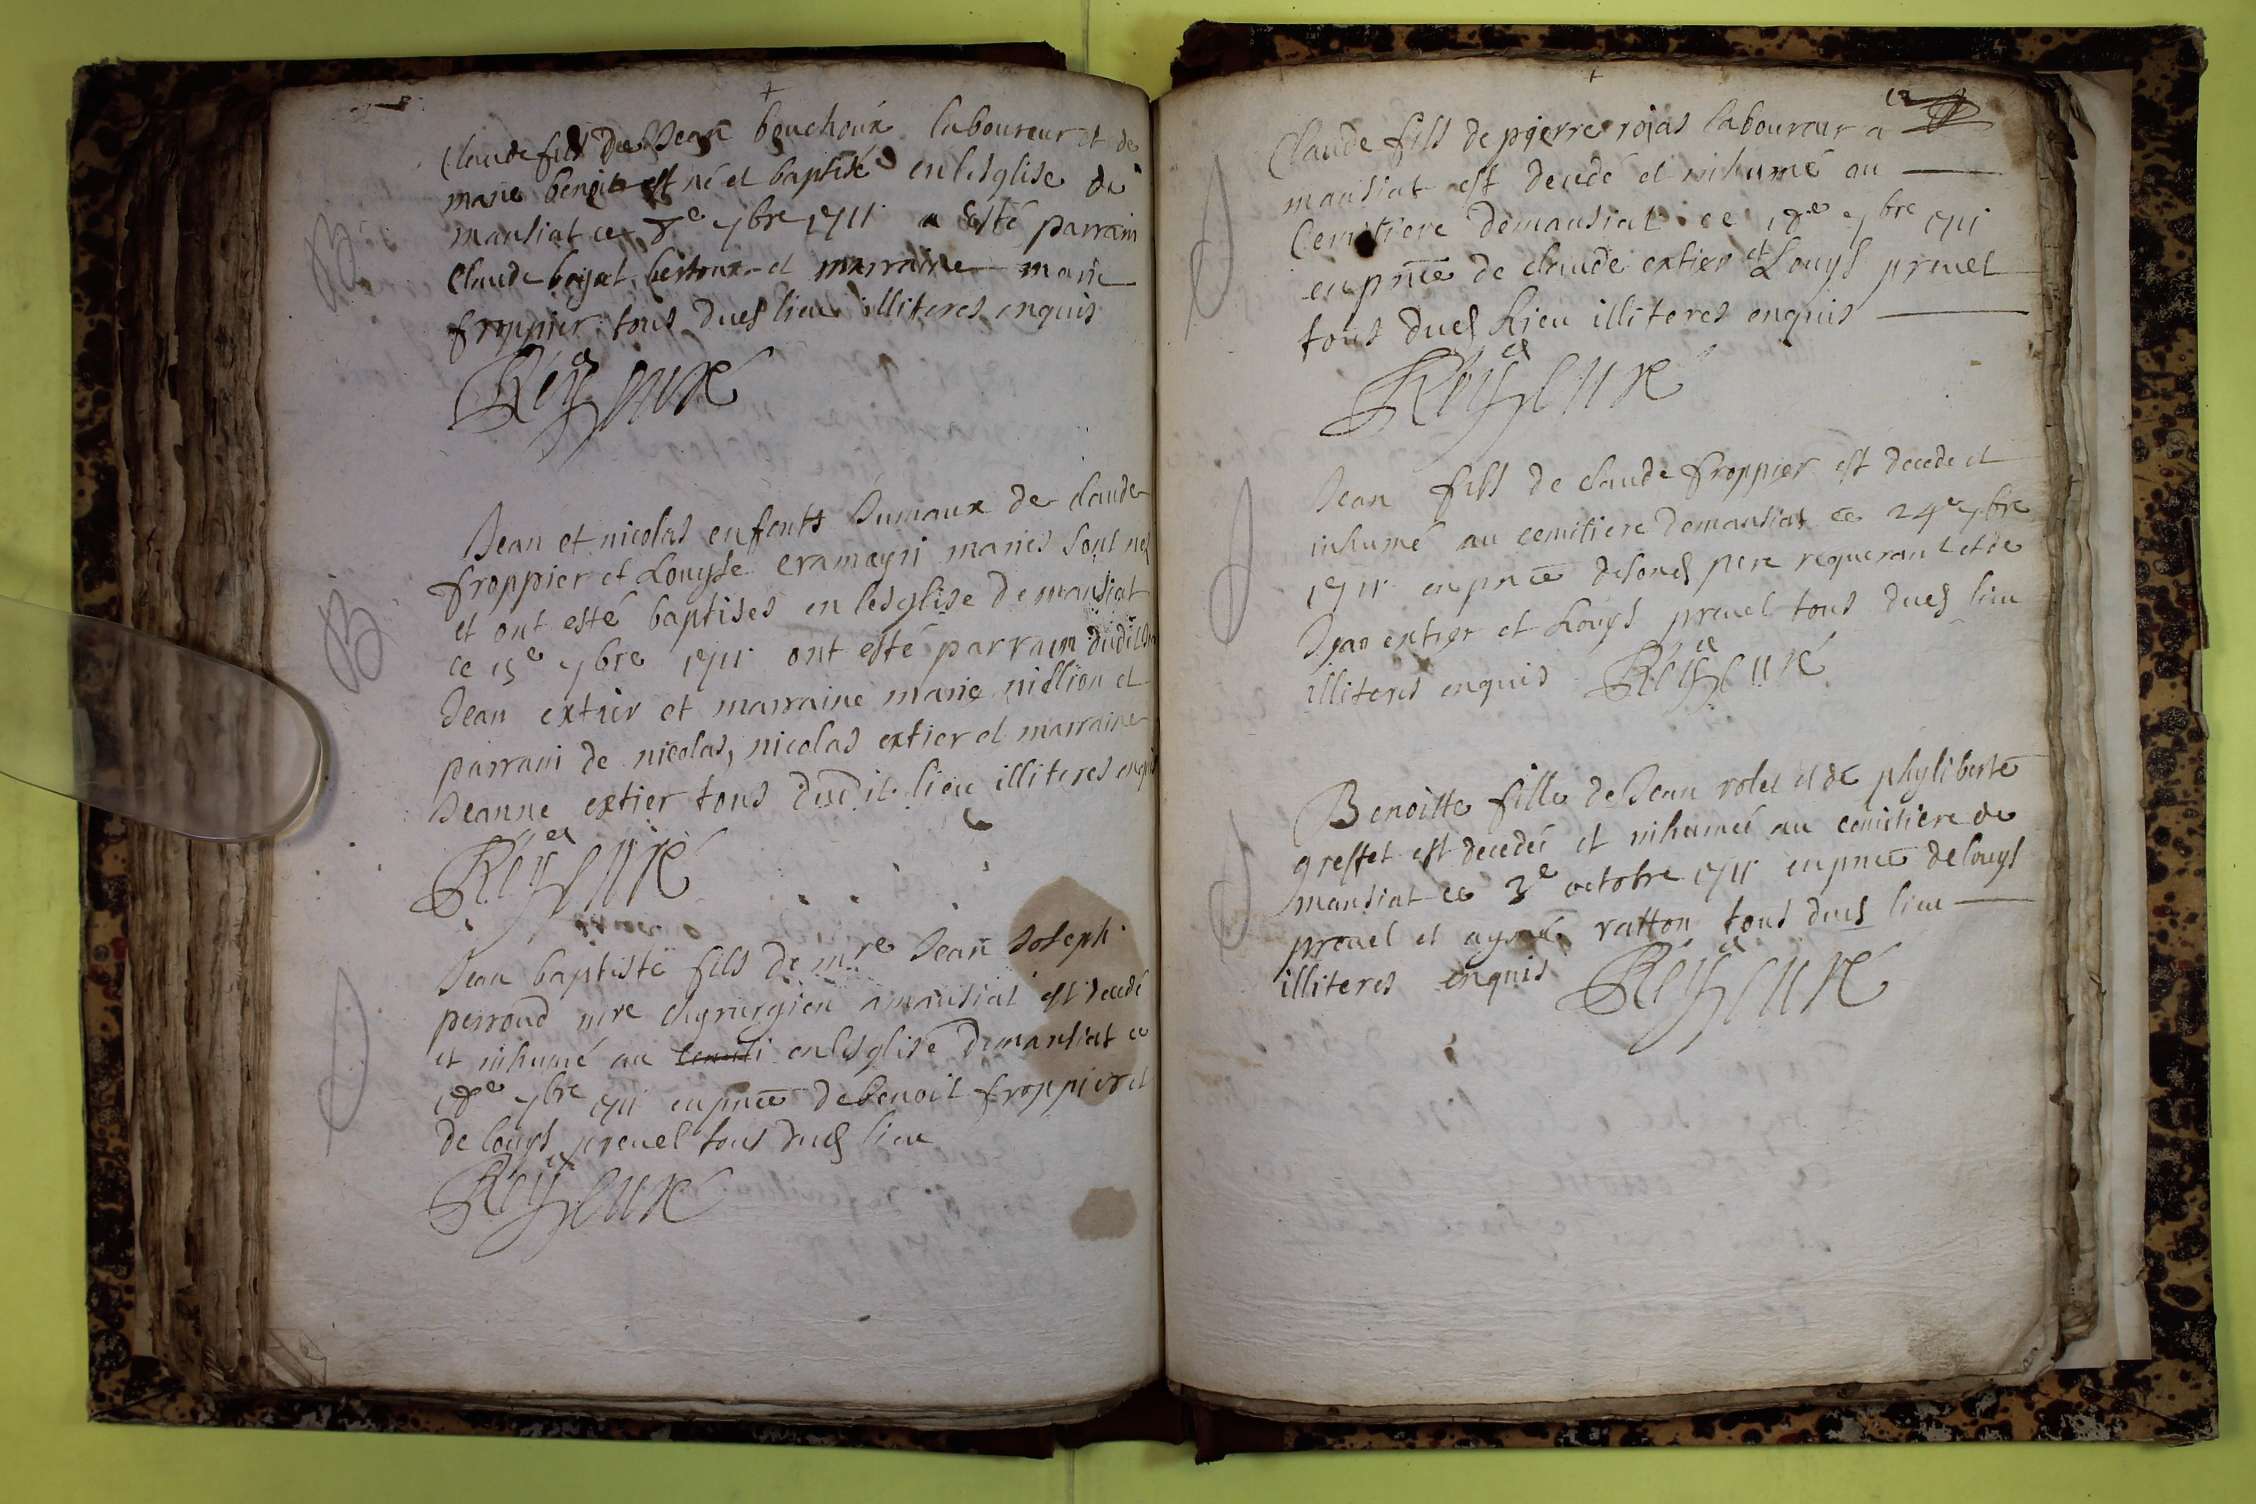 Claude fils de Jean bouchoux laboureur et de
marie benoit est né et baptisé en lesglise de
mansiat ce 8e 7bre 1711 a esté parrain
Claude et marraine marie
froppier tous dud lieu illiteres enquis
Rey curé
B
Jean et nicolas enfents Jumaux de claude
froppier et Louyse cramayri mariés sont nés
et ont esté baptises en lesglise de mansiat
ce 15e 7bre 1711 ont esté parrain dudit
Jean extier et marraine marie million et
parrain de nicolas, nicolas extier et marraine
Jeanne extier tous dudit lieu illiteres enquis
Rey curé
B
Jean baptiste fils de mre Jean Joseph
perroud mre chyrurgien a mansiat est decedé
et inhumé au cemiti en lesglise de mansiat ce
18e 7bre 1711 en pnce de benoit froppier et
de louys preuel tous dud lieu
Rey curé
12
Claude fils de pierre rojas laboureur a
mansiat est decedé et inhumé au
Cemitiere de mansiat ce 18e 7bre 1711
en pnce de claude extier et Louys preuel
tous dud Lieu illiteres enquis
Rey curé
Jean fils de claude froppier est decede et
inhumé au cemitiere de mansiat ce 24e 7bre
1711 en pnce de son d pere requerant et de
Jean extier et Louys preuel tous dud lieu
illiteres enquis Rey curé
Benoitte fille de Jean rolet et de phyliberte
greffet est decedée et inhumée au cemitiere de
mansiat ce 3e octobre 1711 en pnce de louys
preuel et aymé ratton tous dud lieu
illiteres enquis Rey curé